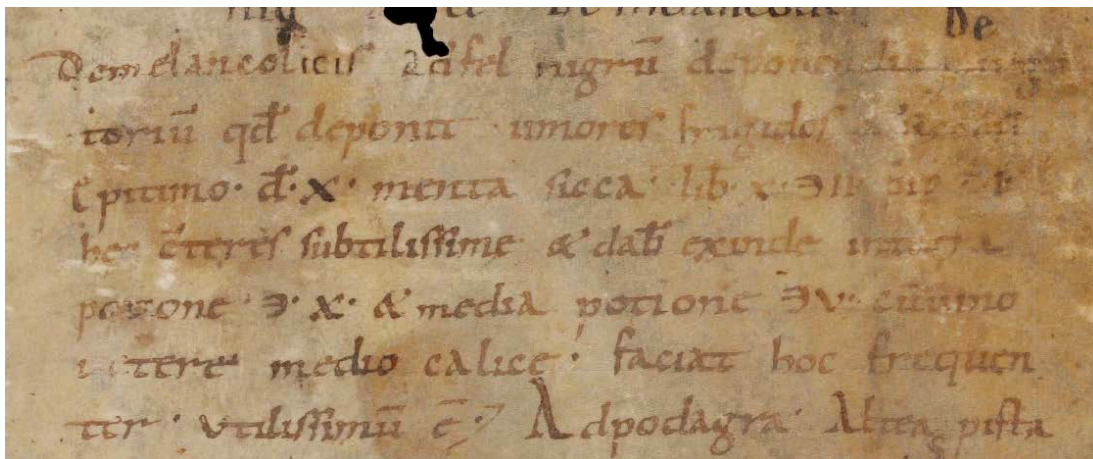 De
De melancolicis & si fel nigrū deponendū
toriū qđ deponit umores frigidos
Epitimo · đ · x · menta sicca · lib · x · ℈ II · pip
hec c̄teres subtilissime & dab̄ exinde integra
potione ℈ · x · & media potione ℈ v · cū uino
uetere medio calice · faciat hoc frequen
ter · utilissimū ē · Ad podagra · Altea pista